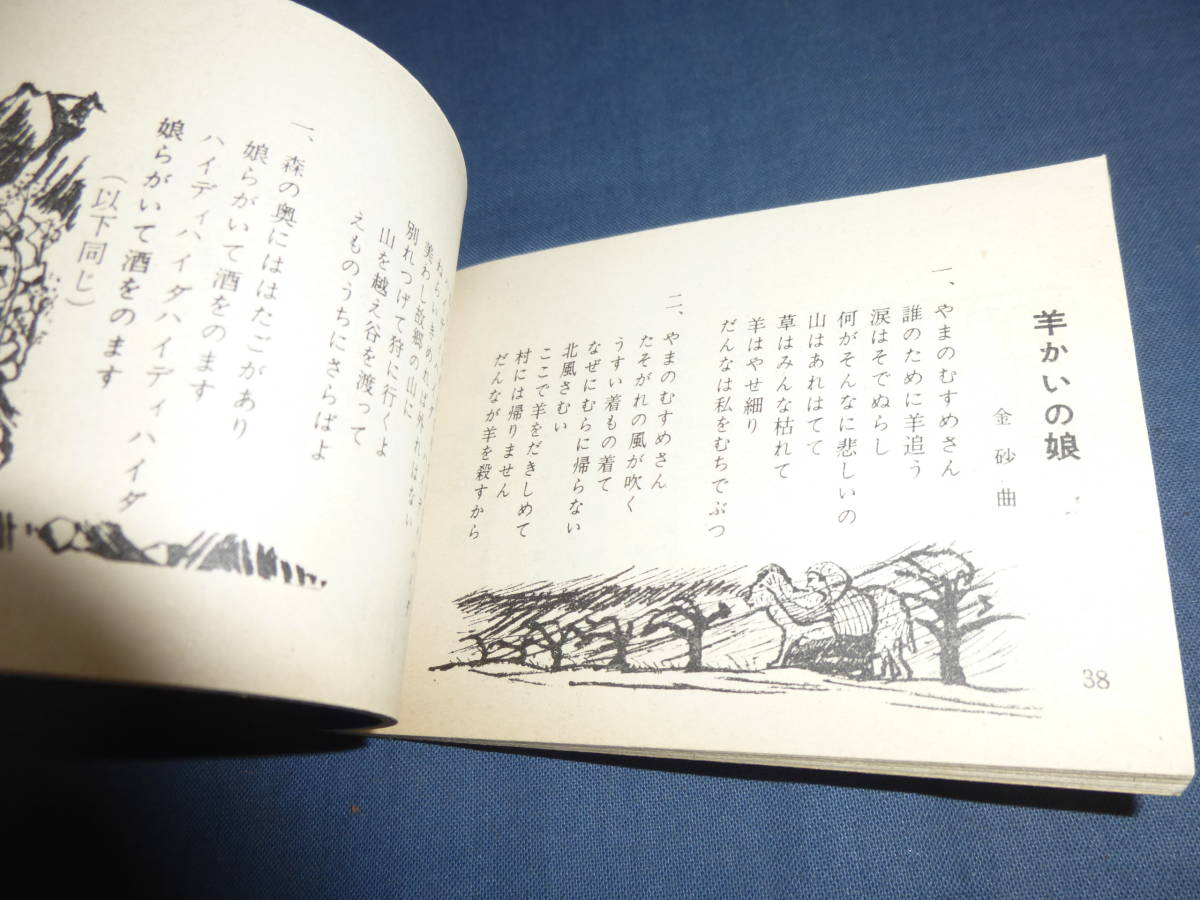 羊かいの娘
金砂曲
一、やまのむすめさん
誰のために羊追う
涙はそでぬらし
何がそんなに悲しいの
山はあれはてて
草はみんな枯れて
羊はやせ細り
だんなは私をむちでぶつ
二、やまのむすめさん
たそがれの風が吹く
うすい着もの着て
なぜにむらに帰らない
北風さむい
ここで羊をだきしめて
村には帰りません
だんなが羊を殺すから
38
一、森の奥にはたごがあり
娘らがいて酒をのます
ハイディハイダハイディハイダ
娘らがいて酒をのます
(以下同じ)
美わし故郷の山に
別れつげて狩に行くよ
山を越え谷を渡って
えものうちにさらばよ